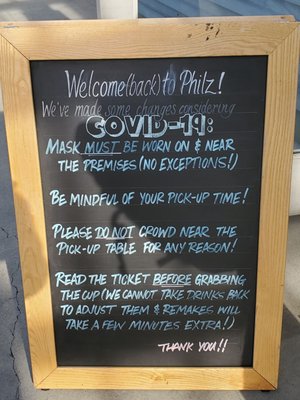 Welcome (back) to Philz!
We've made some changes considering
COVID-19:
MASK MUST BE WORN ON & NEAR
THE PREMISES (NO EXCEPTIONS!)
BE MINDFUL OF YOUR PICK-UP TIME!
PLEASE DO NOT CROWD NEAR THE
PICK-UP TABLE FOR ANY REASON!
READ THE TICKET BEFORE GRABBING
THE CUP (WE CANNOT TAKE DRINKS BACK
TO ADJUST THEM & REMAKES WILL
TAKE A FEW MINUTES EXTRA!)
THANK YOU!!